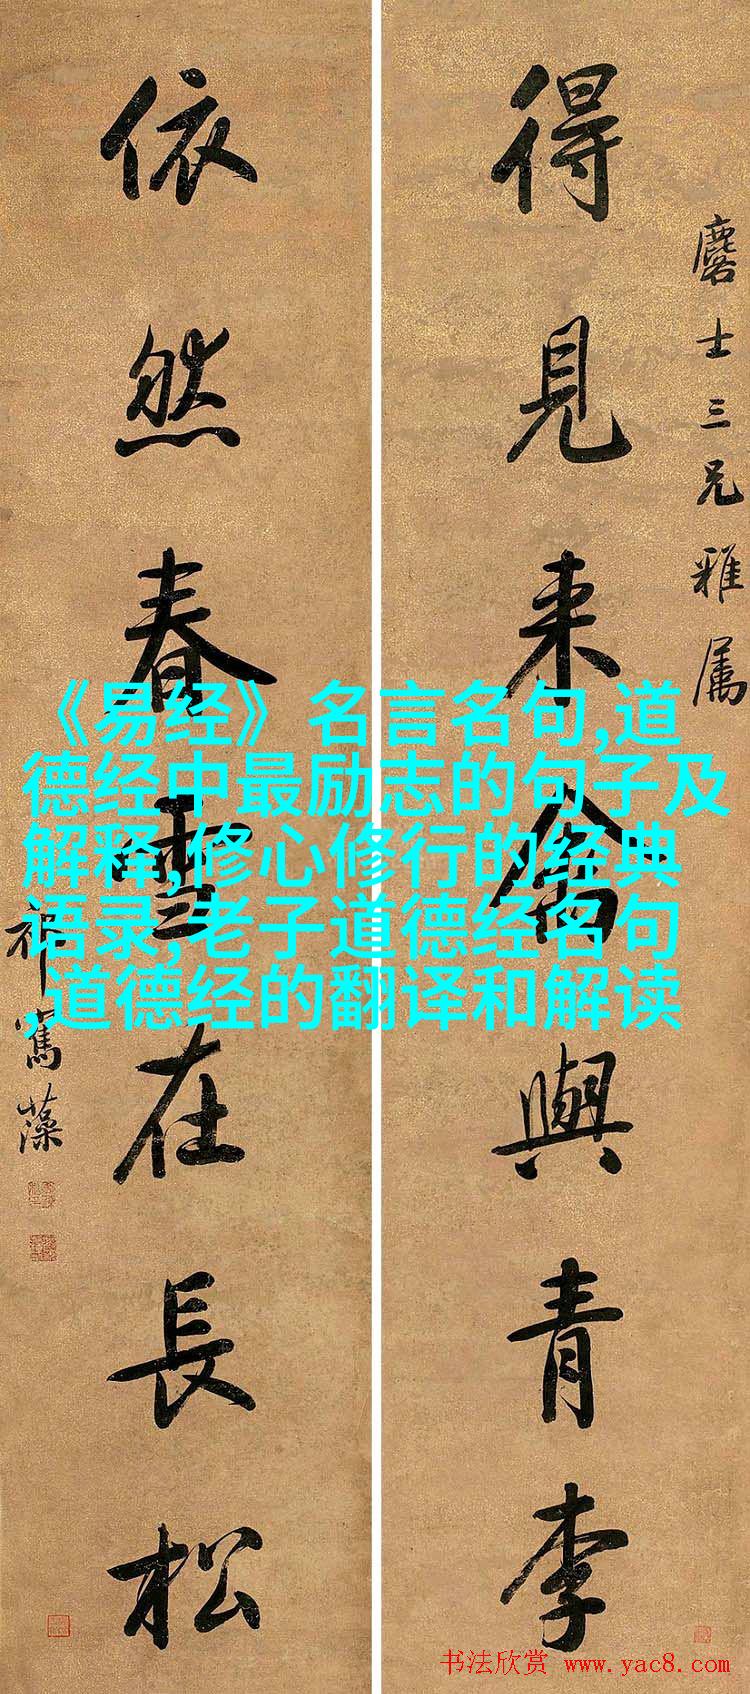 麐士三兄雅属
得見来禽與青李
依然春雪在長松
祁寯藻
《易经》名言名句,道
德经中最励志的句子及
解释,修心修行的经典
语录,老子道德经名句
,道德经的翻译和解读
书法欣赏 www.yac8.com